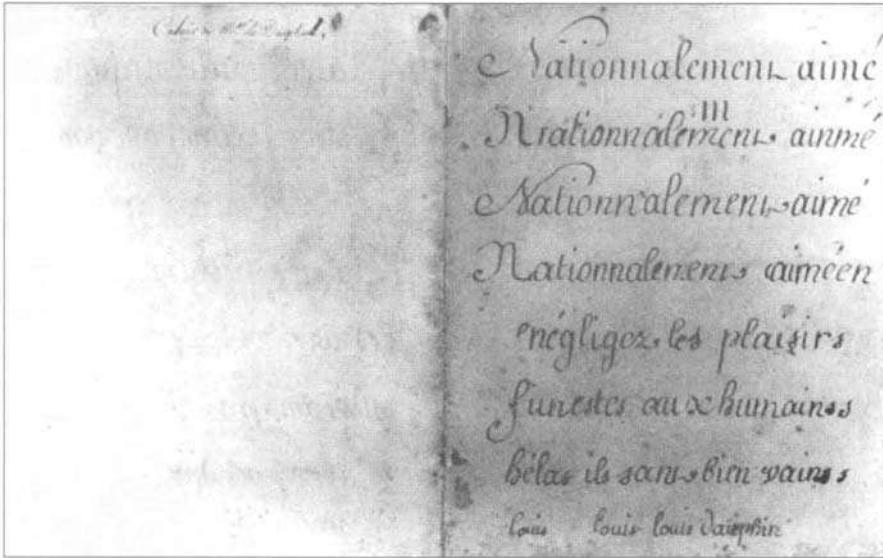 Cahier de Mgr le Dauphin
Nationnalement aimé
m
Nrationnalement ainmé
Nationnalement aimé
Nationnalement aiméen
négligez les plaisirs
funestes aux humainss
hélas ils sont bien vainss
louis louis louis dauphin